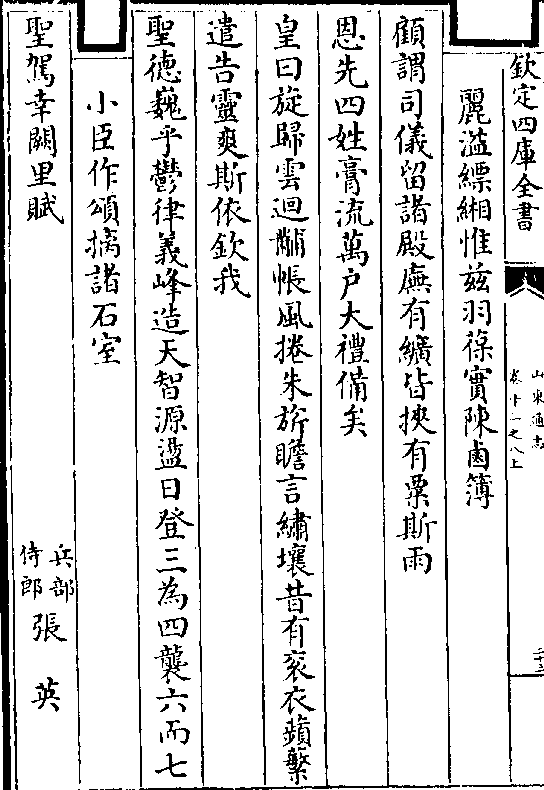 欽定四庫全書
山東通志
卷十一之八上
二十三
麗溢縹緗惟兹羽葆實陳鹵簿
顧謂司儀留諸殿廡有纊皆挾有粟斯雨
恩先四姓膏流萬户大禮備矣
皇曰旋歸雲迴黼帳風捲朱旂瞻言繡壤昔有衮衣蘋蘩
遣告靈爽斯依欽我
聖德巍乎鬱律義峰造天智源盪日登三為四襲六而七
小臣作頌摛諸石室
聖駕幸闕里賦
兵部侍郎張英